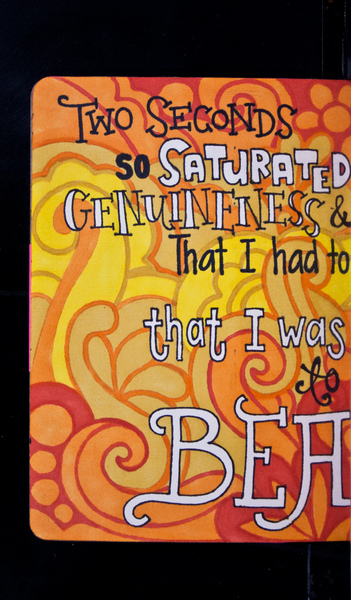 Two Seconds
so SATURATED
GENUINENESS &
That I had to
that I was
to
BEA